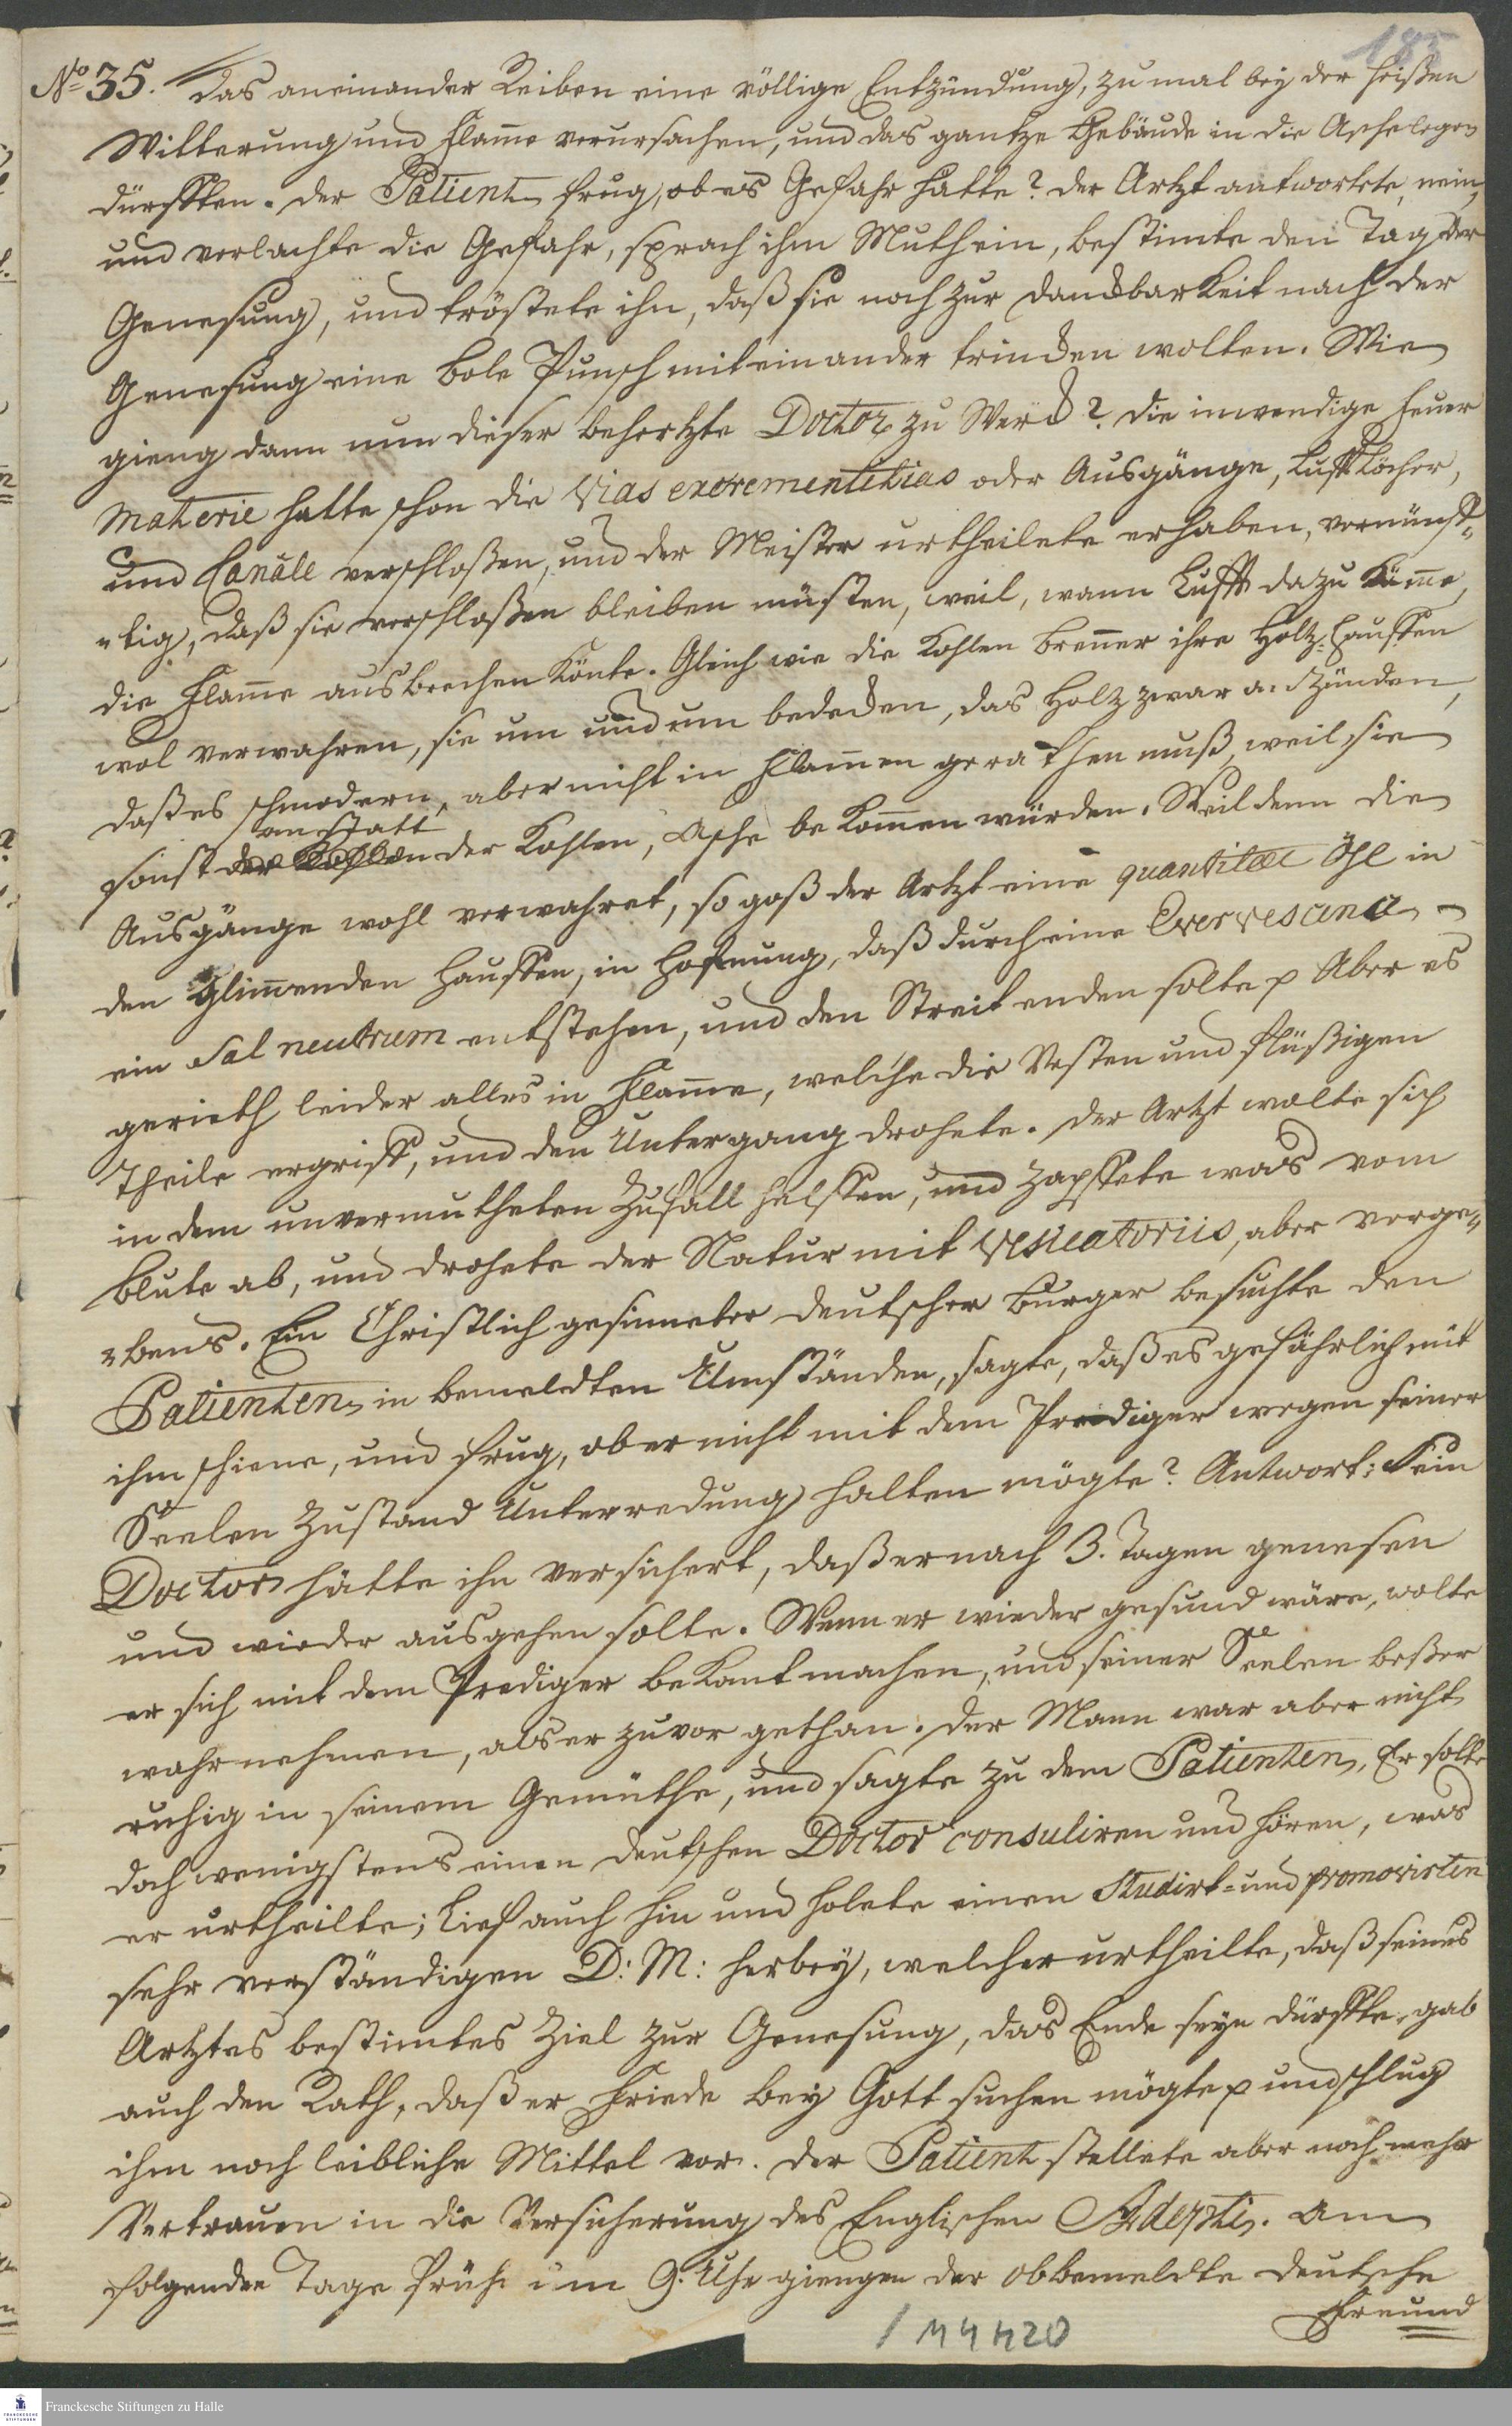 185
No 35. das aneinander Reiben eine völlige Entzündung, zumal bey der heißen
Witterung und Flam̅e verursachen, und das gantze Gebäude in die Asche legen
dürfften. Der Patient frug, ob es Gefahr hätte? der Artzt antwortete, nein,
und verlachte die Gefahr, sprach ihm Muth ein, bestimte den Tag der
Genesung, und tröstete ihn, daß sie noch zur Danckbarkeit nach der
Genesung eine bole Punsch mit einander trincken wolten. Wie
gieng dann nun dieser behertzte Doctor zu Werck? Die inwendige Feuer
Materie hatte schon die Vias excrementitias oder Ausgänge, Lufft Löcher,
und Canäle verschloßen, und der Meister urtheilete erhaben, vernünff-
-tig, daß sie verschloßen bleiben müsten, weil, wann Lufft dazu käm̅e,
die Flam̅e ausbrechen könte. Gleich wie die Kohlen Bren̅er ihre Holtz-Hauffen
wol verwahren, sie um und um bedecken, das Holz zwar anzünden,
daß es schmodern, aber nicht in Flam̅en gerathen muß, weil sie
anstatt
sonst der Kohlen, Asche bekom̅en würden. Weil denn die
Ausgänge wohl verwahret, so goß der Artzt eine quantitæt Öhl in
den glim̅enden Hauffen, in Hofnung, daß durch eine
ein Sal neutrum entstehen, und den Streit enden solte p Aber es
gerieth leider alles in Flam̅e, welche die Vesten und flüßigen
Theile ergriff, und den Untergang drohete. Der Artzt wolte sich
in dem unvermutheten Zufall helffen, und zapffete was vom
Blute ab, und drohete der Natur mit Vesicatoriis, aber verge-
-bens. Ein Christlich gesinneter deutscher Burger besuchte den
Patienten in bemeldten Umständen, sagte, daß es gefährlich mit
ihm schiene, und frug, ob er nicht mit dem Prediger wegen seiner
Seelen Zustand Unterredung halten mögte? Antwort: Sein
Doctor hätte ihn versichert, daß er nach 3. Tagen genesen
und wieder ausgehen solte. Wenn er wieder gesund wäre, wolte
er sich mit dem Prediger bekant machen, und seiner Seelen beßer
wahrnehmen, als er zuvor gethan. Der Mann war aber nicht
ruhig in seinem Gemüthe, und sagte zu dem Patienten, Er solte
doch wenigstens einen deutschen Doctor consuliren und hören, was
er urtheilte; Lief auch hin und holete einen Studirt- und promovirten
sehr verständigen D: M: herbey, welcher urtheilte, daß seines
Artztes bestimtes Ziel zur Genesung, das Ende seyn dürffte, gab
auch den Rath, daß er Friede bey Gott suchen mögte p und schlug
ihm noch leibliche Mittel vor. Der Patient stellete aber noch mehr
Vertrauen in die Versicherung des Englischen Adepti. Am
folgenden Tage früh um 9. Uhr giengen der obbemeldte deutsche
Freund
Franckesche Stiftungen zu Halle